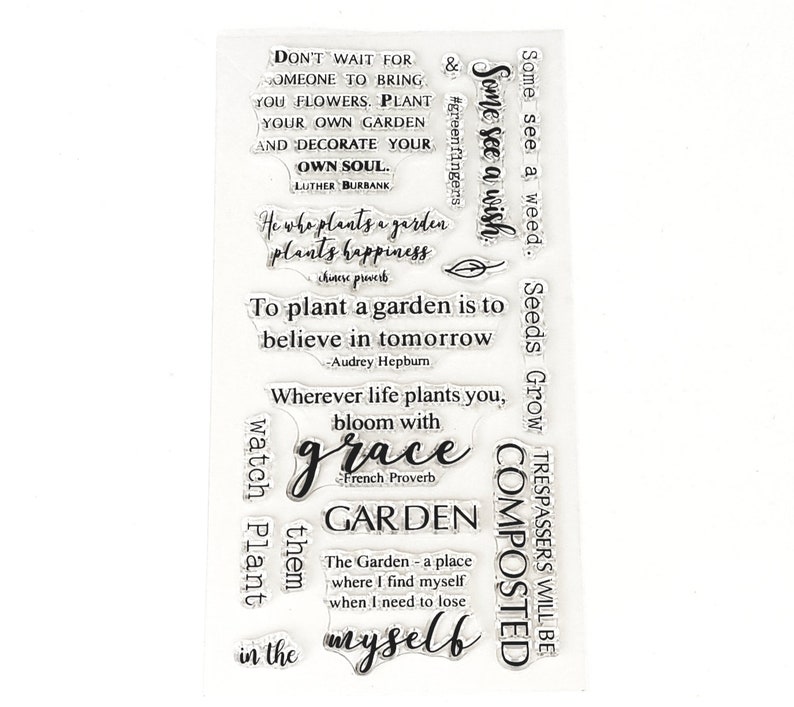 DON'T WAIT FOR
SOMEONE TO BRING
YOU FLOWERS. PLANT
YOUR OWN GARDEN
AND DECORATE YOUR
OWN SOUL.
LUTHER BURBANK
&
#greenfingers
Some see a wish.
Some see a weed.
He who plants a garden
plants happiness
chinese proverb
To plant a garden is to
believe in tomorrow
-Audrey Hepburn
Seeds Grow
Wherever life plants you,
bloom with
grace
-French Proverb
watch
GARDEN
TRESPASSERS WILL BE
COMPOSTED
them
Plant
The Garden - a place
where I find myself
when I need to lose
myself
in the